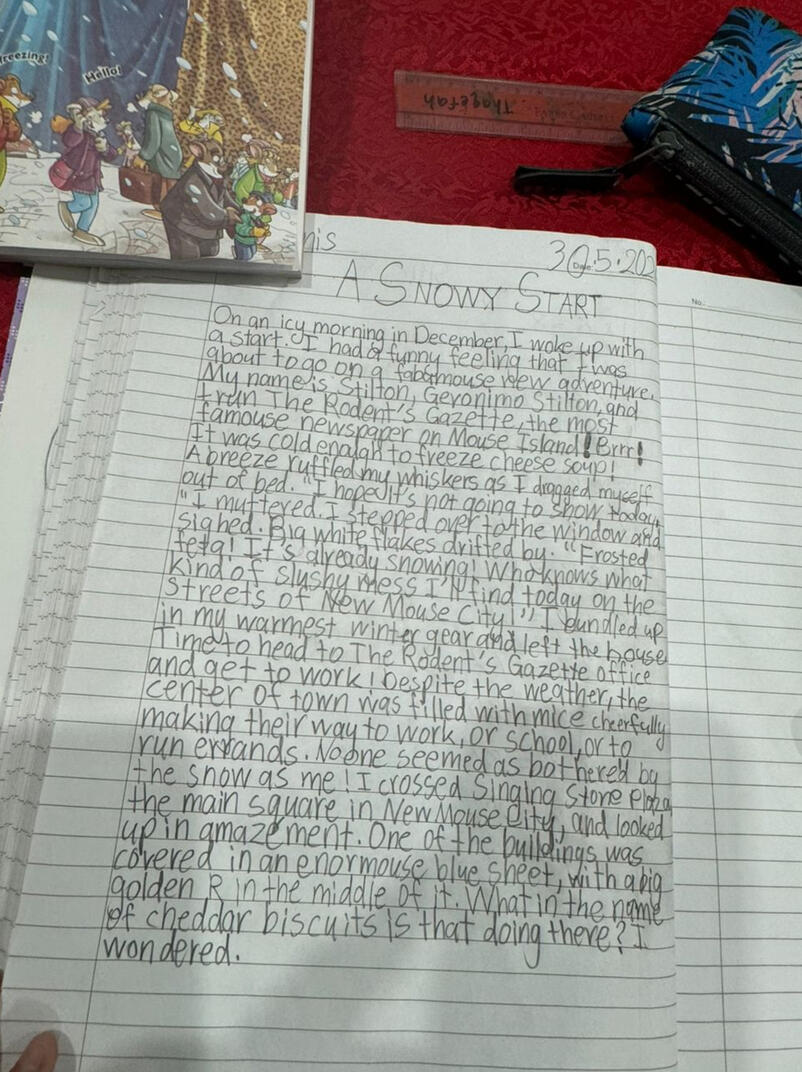 freezing!
Hello!
Thaqefah
nis
30.5.202
Date:
No.:
A SNOWY START
On an icy morning in December, I woke up with
a start. I had a funny feeling that I was
about to go on a fabamouse new adventure.
My name is Stilton, Geronimo Stilton, and
I run The Rodent's Gazette, the most
famouse newspaper on Mouse Island! Brrr!
It was cold enough to freeze cheese soup!
A breeze ruffled my whiskers as I dragged myself
out of bed. "I hope it's not going to snow today,
"I muttered. I stepped over to the window and
sighed. Big white flakes drifted by. "Frosted
feta! It's already snowing! Who knows what
kind of slushy mess I'll find today on the
streets of New Mouse City!" I bundled up
in my warmest winter gear and left the house
Time to head to The Rodent's Gazette office
and get to work! Despite the weather, the
center of town was filled with mice cheerfully
making their way to work, or school, or to
run errands. No one seemed as bothered by
the snow as me! I crossed Singing Stone Plaza
the main square in New Mouse City, and looked
up in amazement. One of the buildings was
covered in an enormouse blue sheet, with a big
golden R in the middle of it. What in the name
of cheddar biscuits is that doing there? I
wondered.